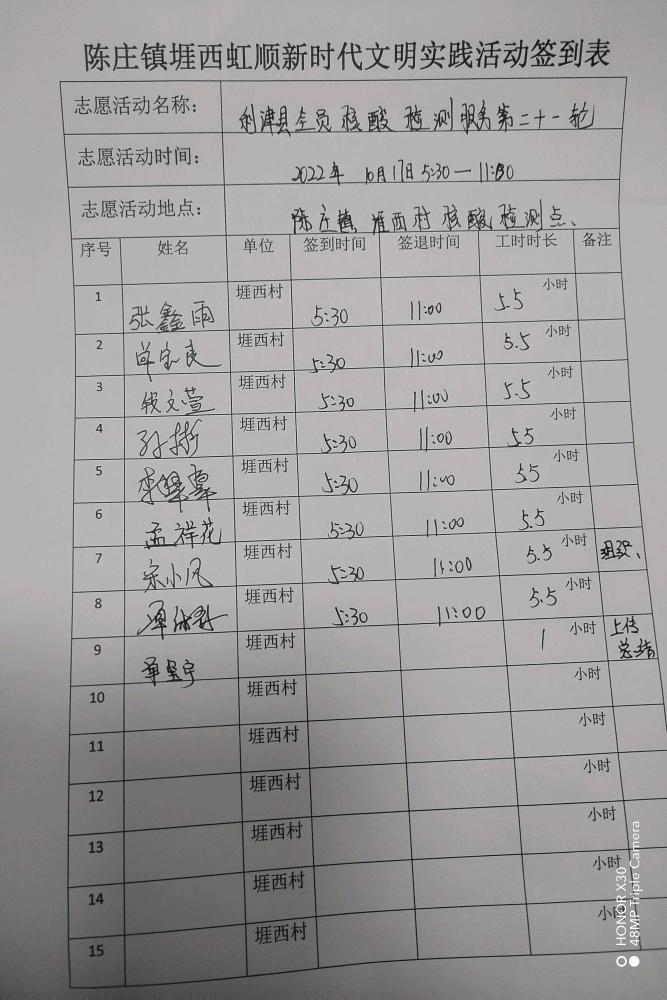 陈庄镇堐西虹顺新时代文明实践活动签到表
志愿活动名称： 利津县全员核酸检测服务第二十一轮
志愿活动时间： 2022年 10月17日 5:30—11:00
志愿活动地点： 陈庄镇 堐西村 核酸检测点、
序号 姓名 单位 签到时间 签退时间 工时时长 备注
1 张鑫雨 堐西村 5:30 11:00 5.5 小时
2 堐西村 5:30 11:00 5.5 小时
3 钱文萱 堐西村 5:30 11:00 5.5 小时
4 孙彬 堐西村 5:30 11:00 5.5 小时
5 堐西村 5:30 11:00 5.5 小时
6 孟祥花 堐西村 5:30 11:00 5.5 小时
7 宋小凤 堐西村 5:30 11:00 5.5 小时 组织、
8 堐西村 5:30 11:00 5.5 小时
9 堐西村 1 小时 上传总结
10 堐西村 小时
11 堐西村 小时
12 堐西村 小时
13 堐西村 小时
14 堐西村 小时
15 堐西村 小时
HONOR X30
48MP Triple Camera